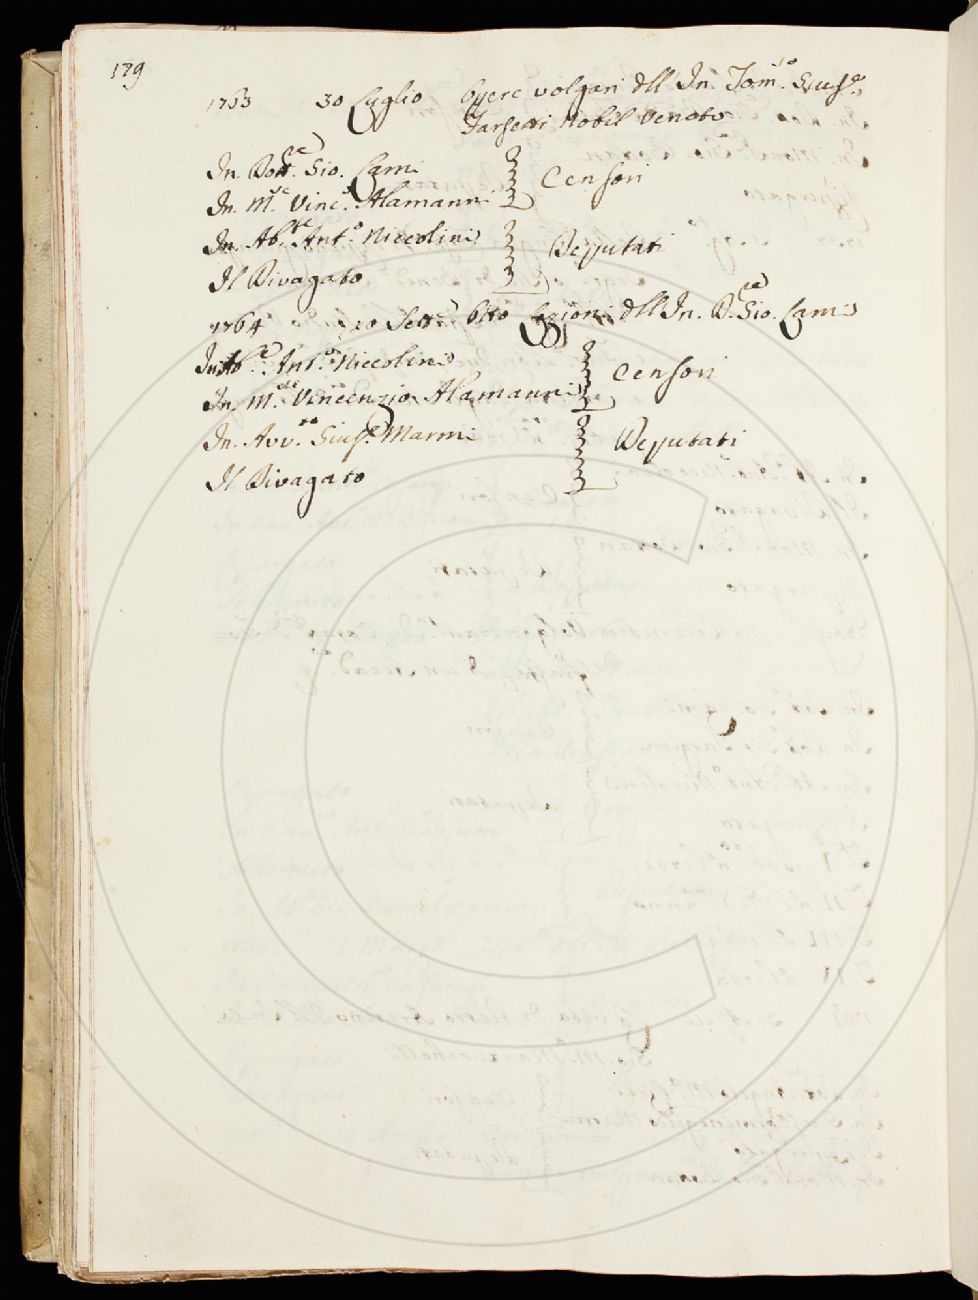 179
1763 30 Luglio Opere volgari dell In. Tom.o Gius.e
Farsetti Nobil Veneto
In. Dott.re Gio. Lami
In. M.se Vinc.o Alamanni
Censori
In. Ab.te Ant.o Niccolini
Il Divagato
Deputati
1764 20 Sett.e Otto Lezioni dell In. D.re Gio. Lami
In. Ab.e Ant.o Niccolini
In. M.se Vincenzio Alamanni
Censori
In. Avv.to Gius.e Marmi
Il Divagato
Deputati